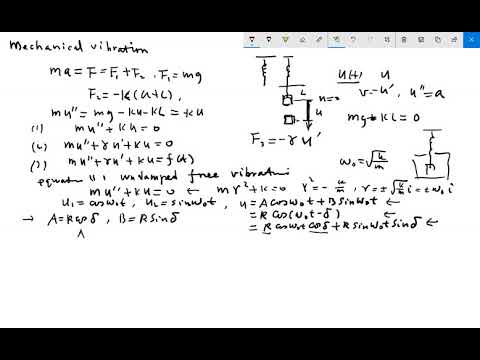 Mechanical vibration
ma = F = F₁ + F₂ . F₁ = mg
F₂ = -k(u+L),
mu'' = mg - ku - kL = ku
(1) mu'' + ku = 0
(2) mu'' + γu' + ku = 0
(3) mu'' + γu' + ku = f(t)
equation (1) undamped free vibration
mu'' + ku = 0 ← mr² + k = 0 r² = - k/m , r = ±√(k/m) i = ± ω₀ i
u₁ = cos ω₀t, u₂ = sin ω₀t, u = A cos ω₀t + B sin ω₀t ←
→ A = R cos δ , B = R sin δ = R cos(ω₀t - δ) ←
= R cos ω₀t cos δ + R sin ω₀t sin δ ←
L
u=0
u(t) u
v = u', u'' = a
mg - kL = 0
F₃ = -γ u'
ω₀ = √(k/m)